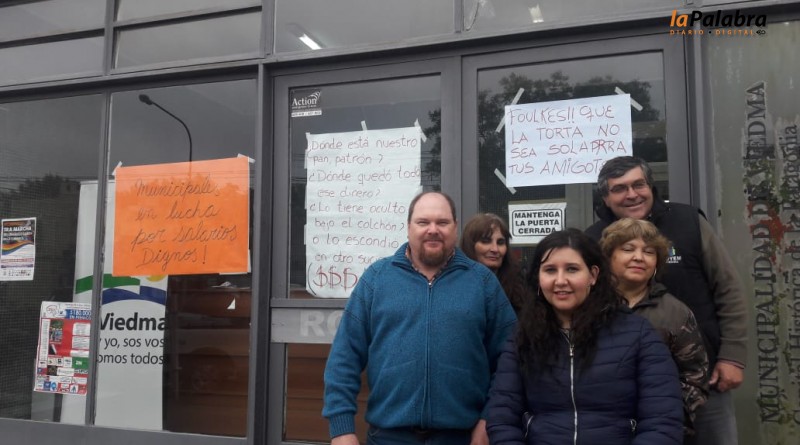 laPalabra
DIARIO - DIGITAL
Action
Donde está nuestro
pan, patrón?
¿Dónde quedó todo
ese dinero?
¿Lo tiene oculto
bajo el colchón?
o lo escondió
en otro
$$$$
FOULKES!! QUE
LA TORTA NO
SEA SOLA PARA
TUS AMIGOTES
MANTENGA
LA PUERTA
CERRADA
Municipales
en lucha
por salarios
Dignos!
MARCHA
$180.000
Viedma
y yo, sos vos
somos todos
MUNICIPALIDAD DE VIEDMA
Histórica de la Patagonia